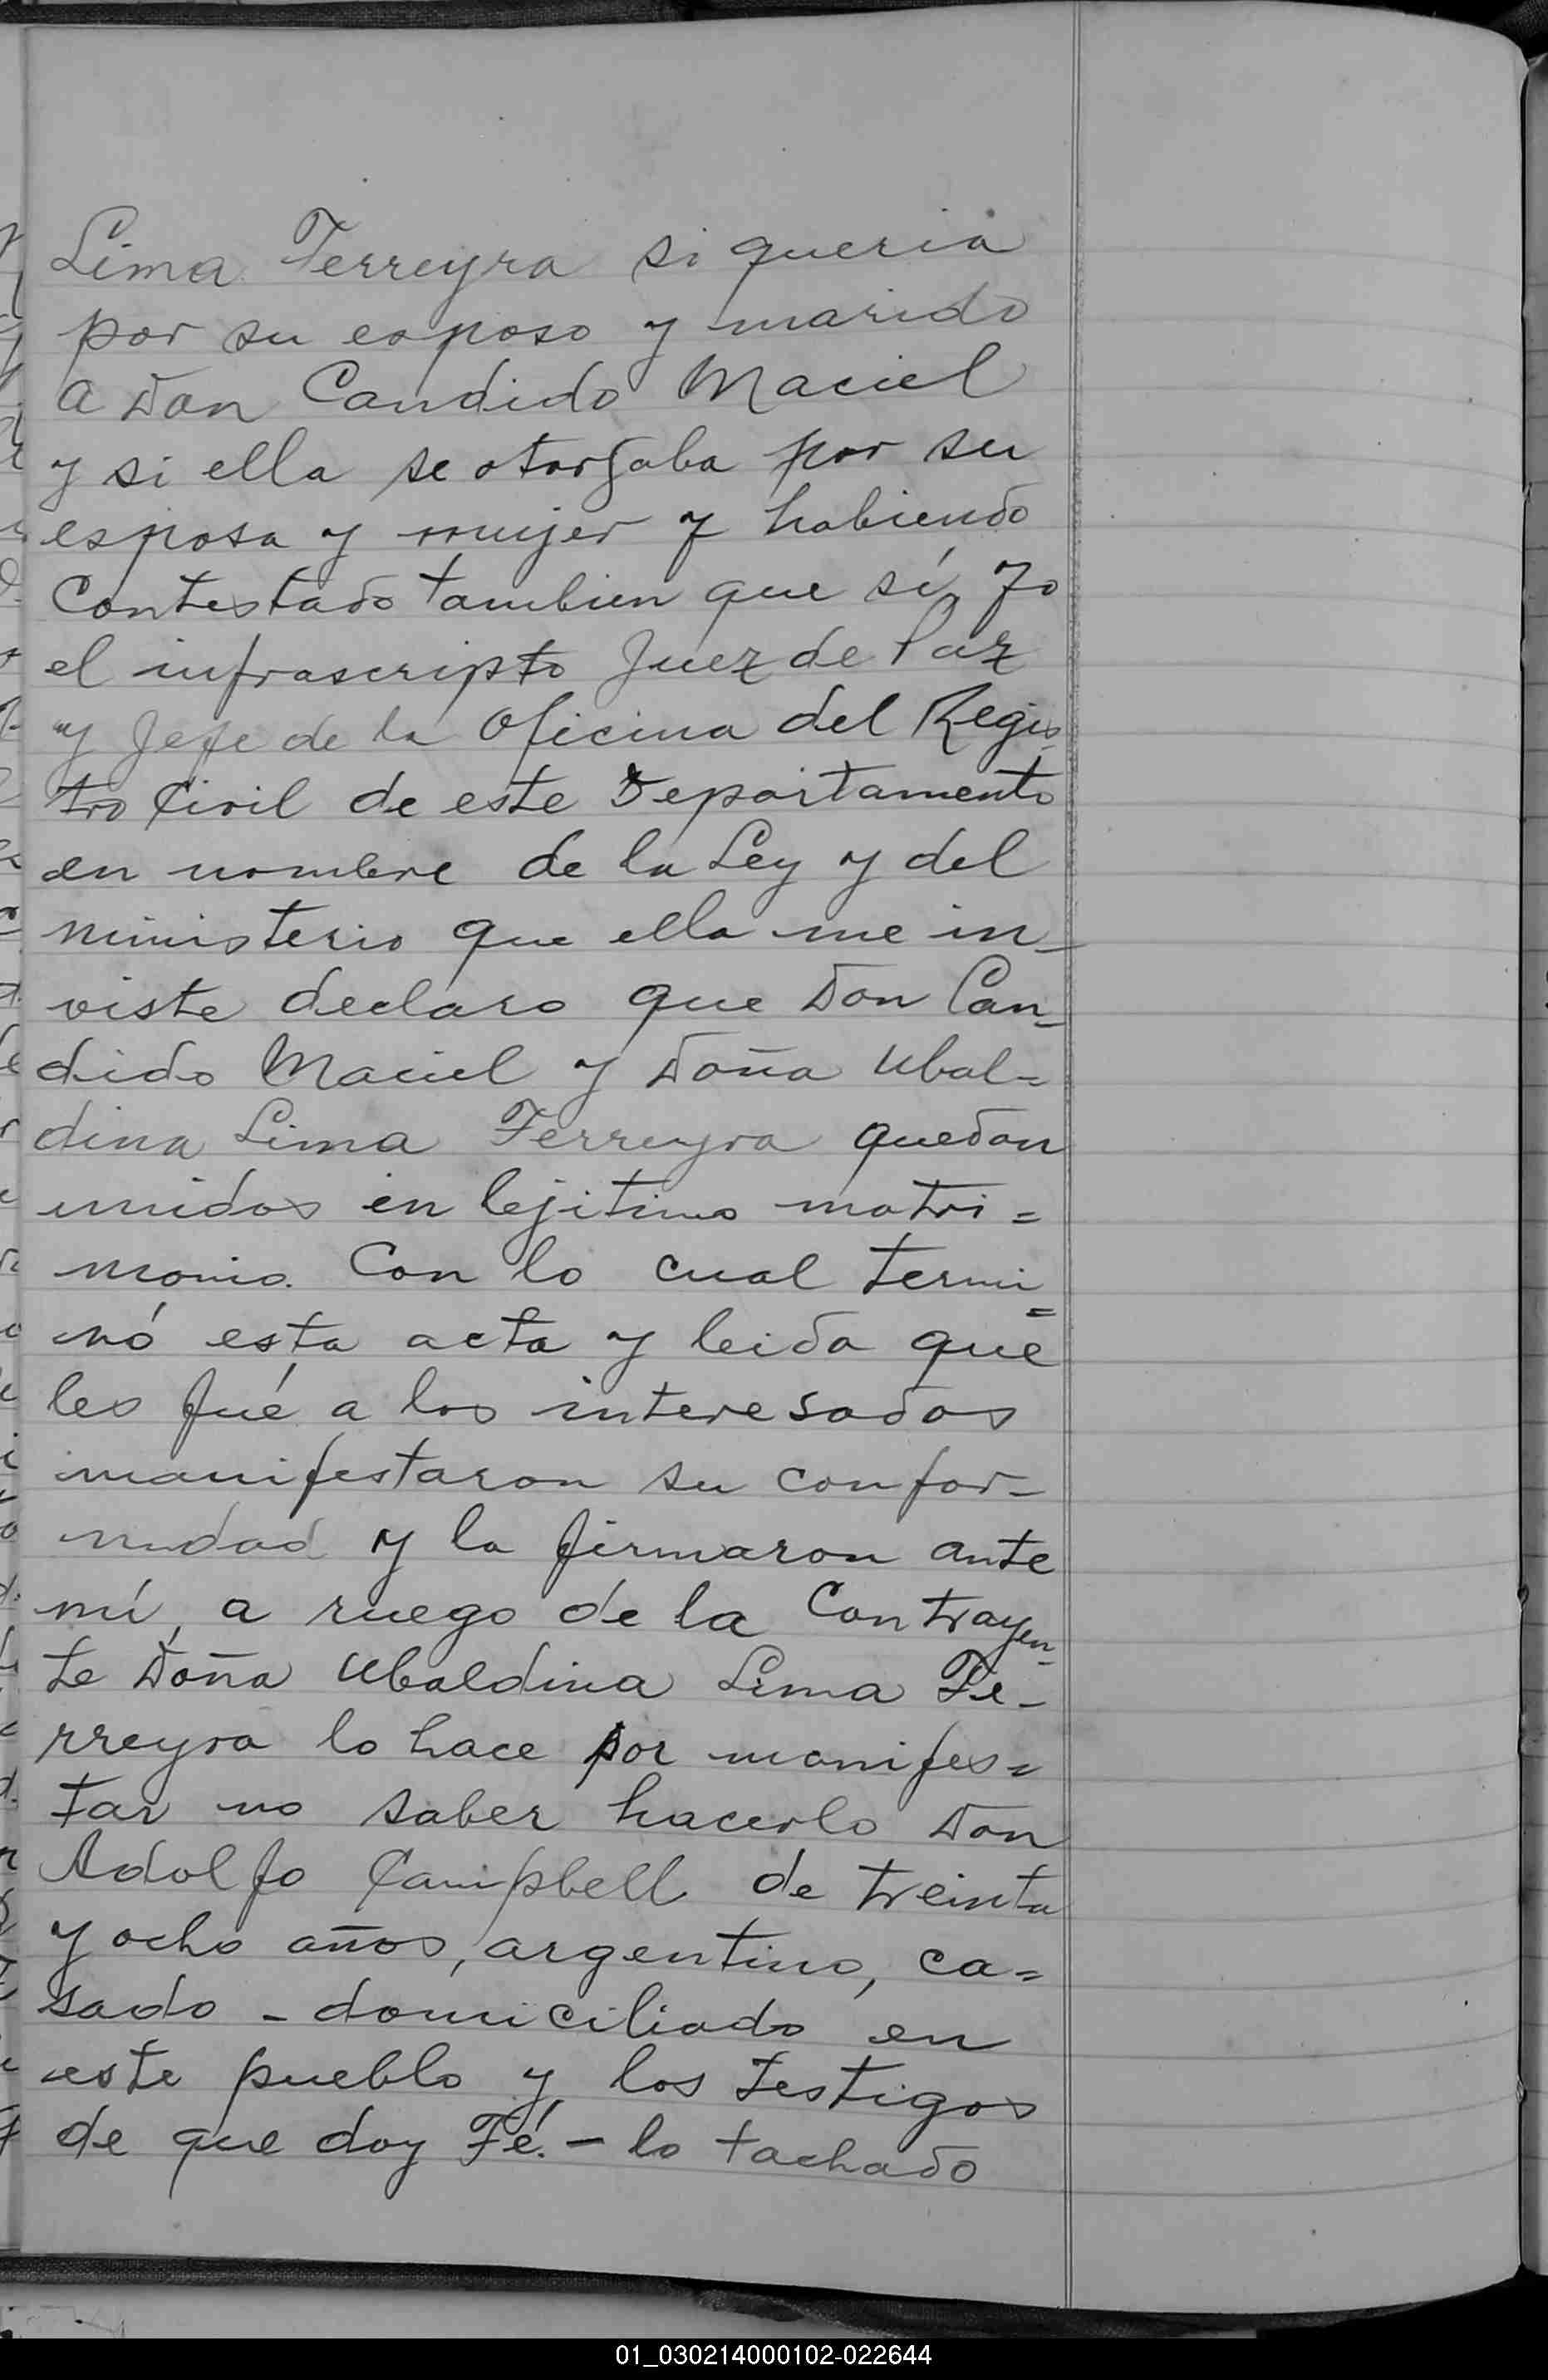 Lima Ferreyra si queria
por su esposo y marido
a Don Candido Maciel
y si ella se otorgaba por su
esposa y mujer y habiendo
Contestado tambien que sí, yo
el infrascripto Juez de Paz
y Jefe de la Oficina del Regis-
tro Civil de este Departamento
en nombre de la Ley y del
ministerio que ella me in-
viste declaro que Don Can-
dido Maciel y Doña Ubal=
dina Lima Ferreyra quedan
unidos en lejitimo matri=
monio. Con lo cual termi=
nó esta acta y leida que
les fué a los interesados
manifestaron su confor-
midad y la firmaron ante
mí, a ruego de la Contrayen-
te Doña Ubaldina Lima Fe-
rreyra lo hace por manifes=
tar no saber hacerlo Don
Adolfo Campbell de treinta
y ocho años, argentino, ca=
sado - domiciliado en
este pueblo y los testigos
de que doy Fé. - lo tachado
01_030214000102-022644